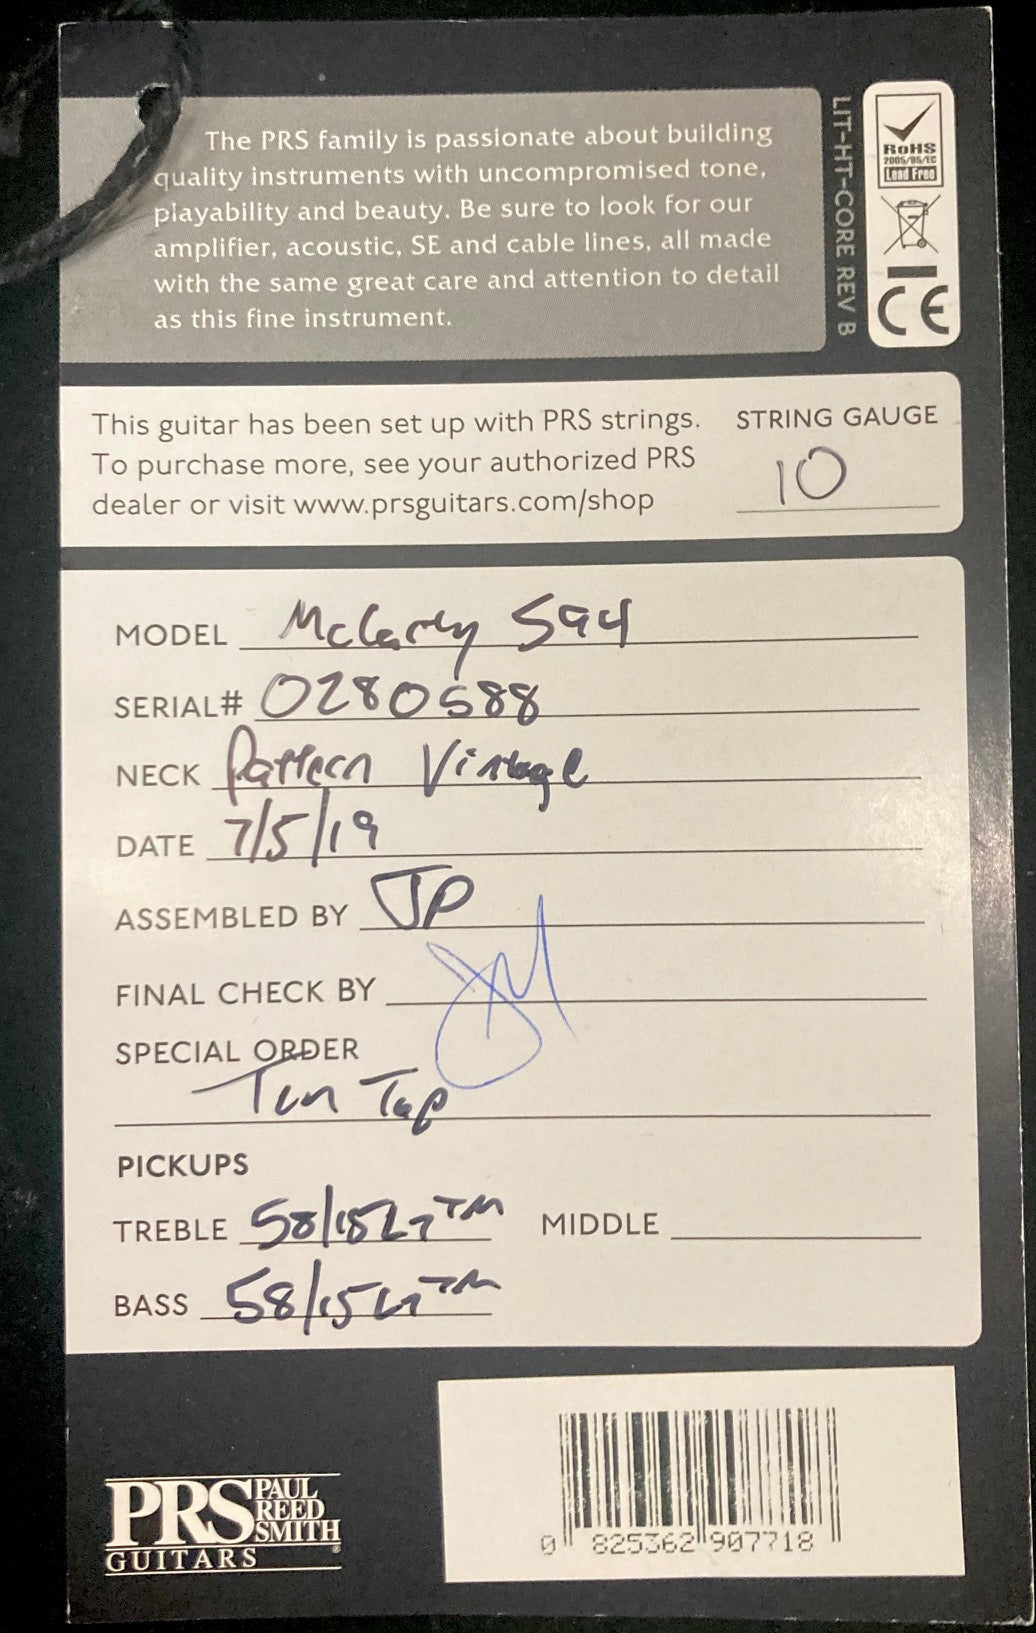 The PRS family is passionate about building
quality instruments with uncompromised tone,
playability and beauty. Be sure to look for our
amplifier, acoustic, SE and cable lines, all made
with the same great care and attention to detail
as this fine instrument.
LIT-HT-CORE REV B
RoHS
2005/95/EC
Lead Free
CE
This guitar has been set up with PRS strings.
To purchase more, see your authorized PRS
dealer or visit www.prsguitars.com/shop
STRING GAUGE
10
MODEL McCarty 594
SERIAL# 0280588
NECK Pattern Vintage
DATE 7/5/19
ASSEMBLED BY JP
FINAL CHECK BY
SPECIAL ORDER
Ten Top
PICKUPS
TREBLE 58/15 LT TM MIDDLE
BASS 58/15 LT TM
PRS PAUL
REED
SMITH
GUITARS
0 825362 907718